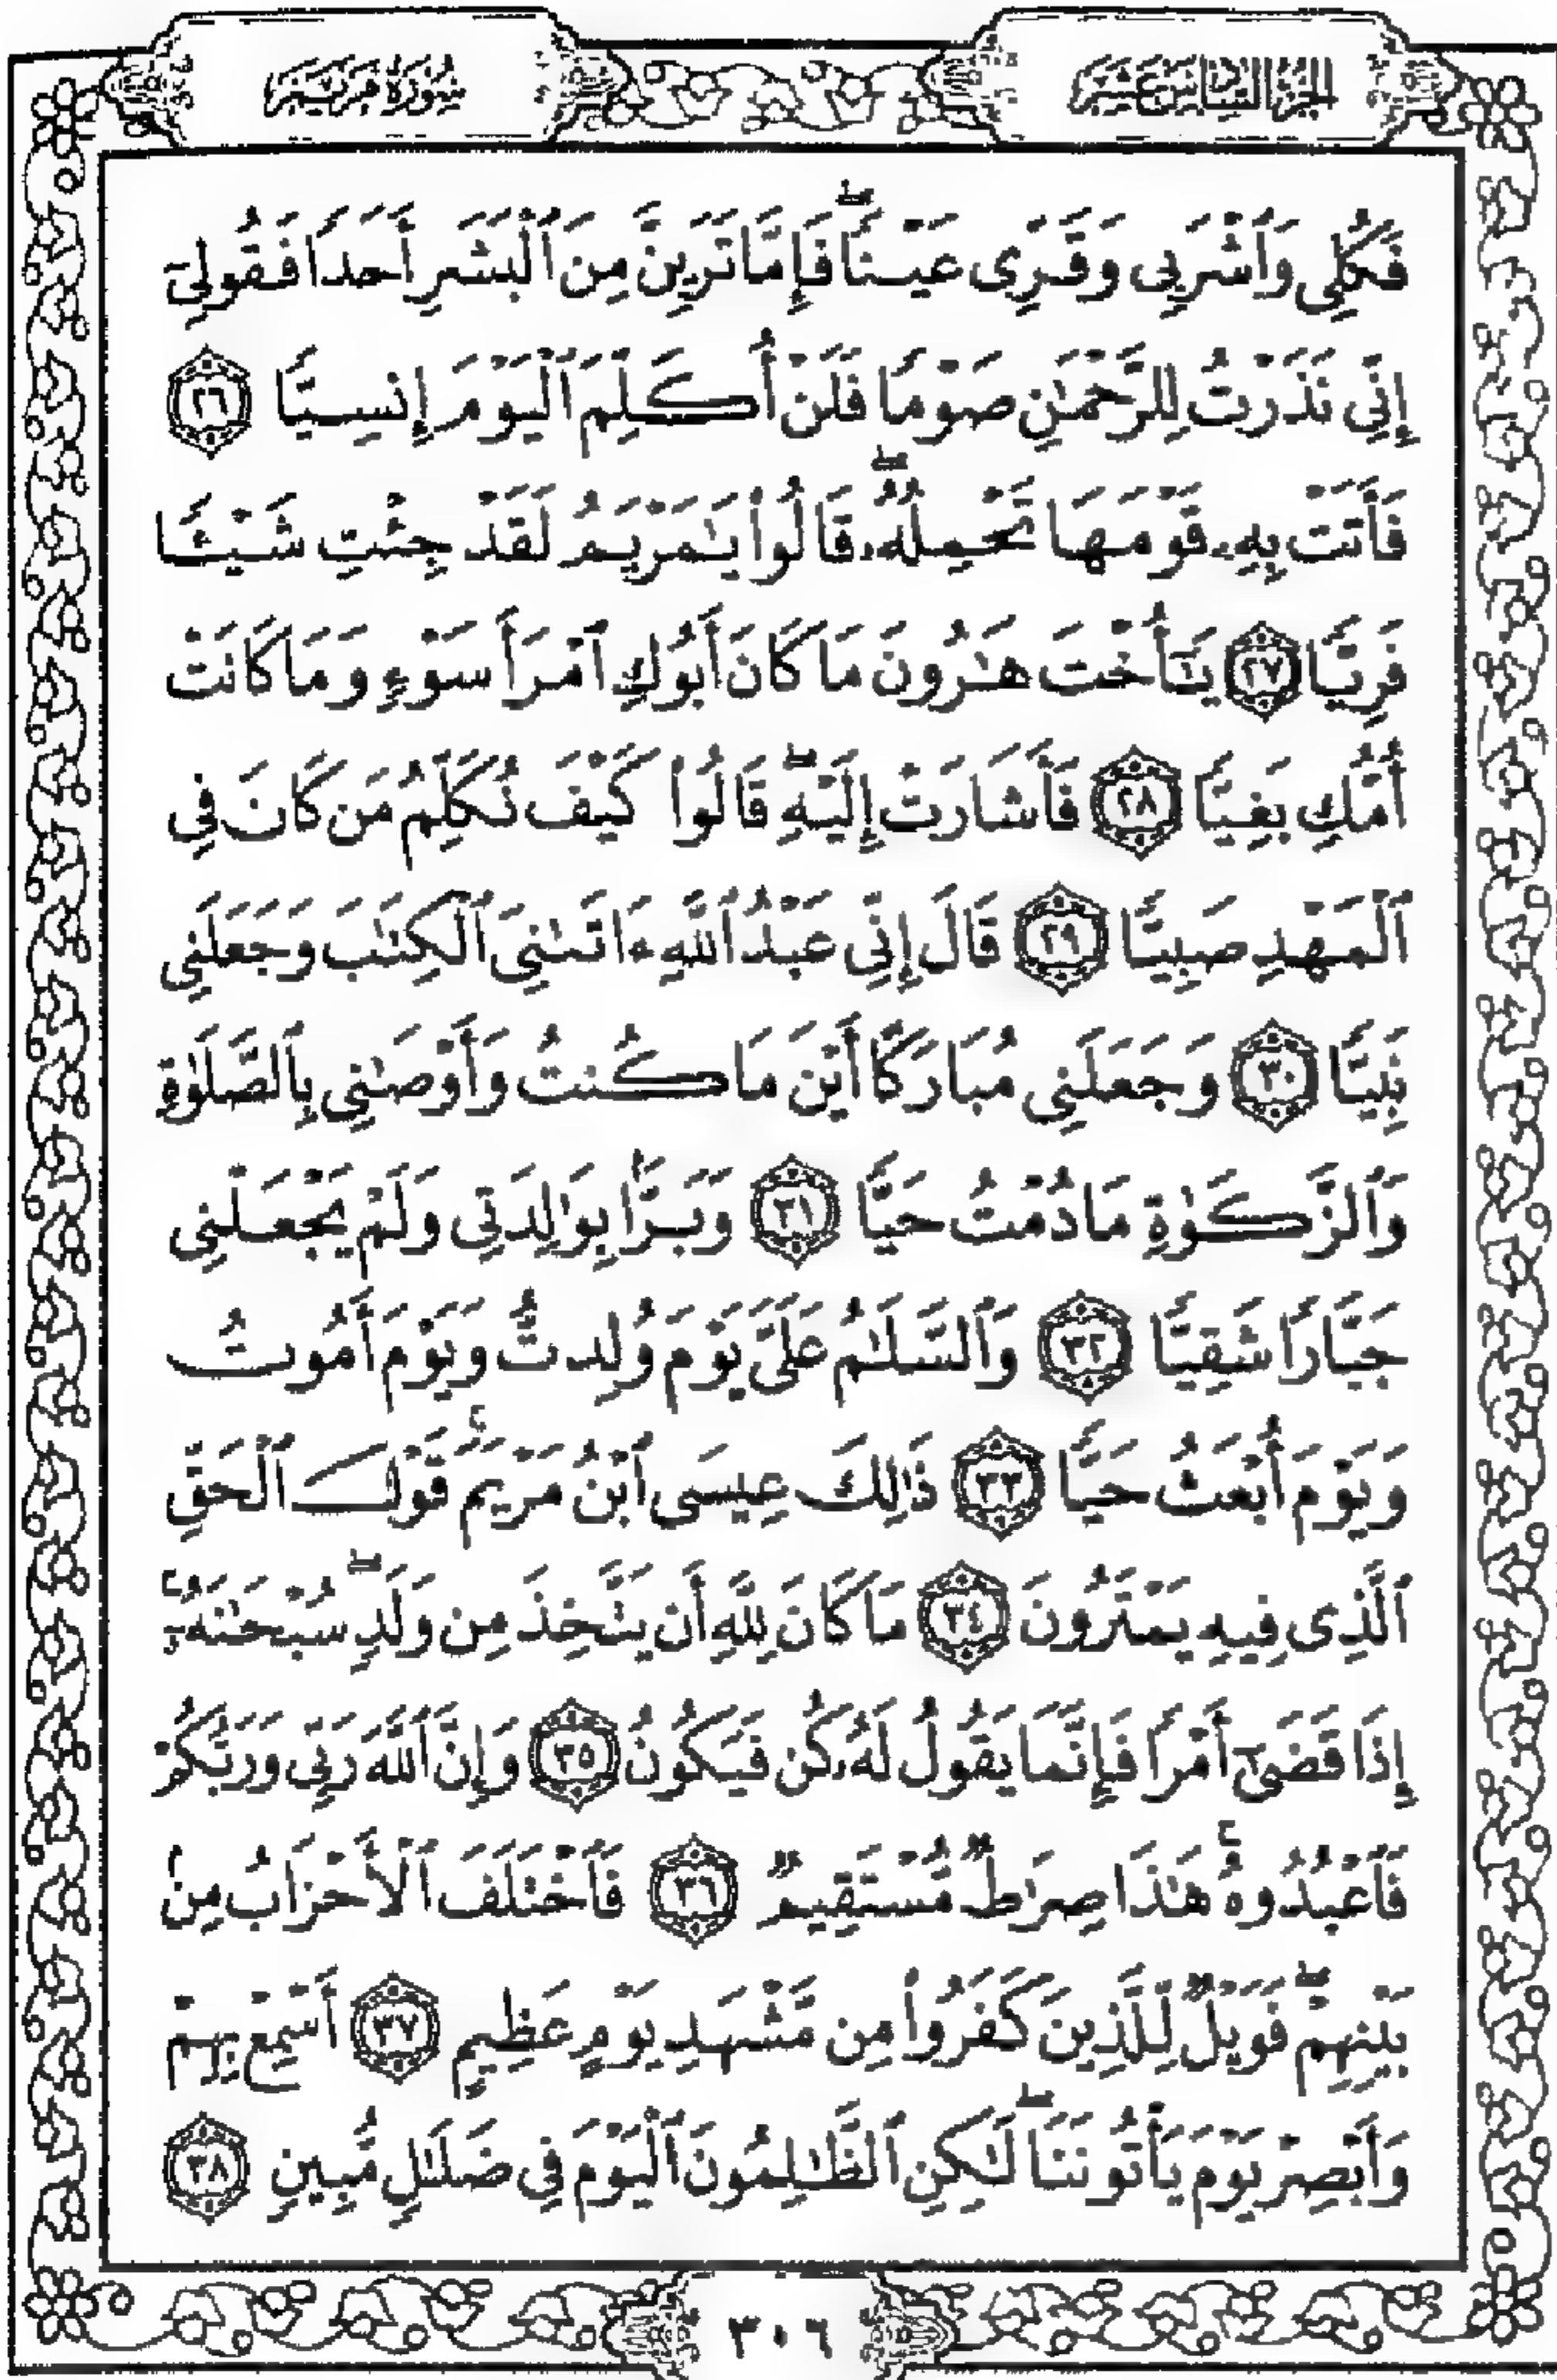 الجزء السادس عشر
سورة مريم
فَكُلِى وَٱشْرَبِى وَقَرِّى عَيْنًاۖ فَإِمَّا تَرَيِنَّ مِنَ ٱلْبَشَرِ أَحَدًا فَقُولِىٓ
إِنِّى نَذَرْتُ لِلرَّحْمَٰنِ صَوْمًا فَلَنْ أُكَلِّمَ ٱلْيَوْمَ إِنسِيًّا ٢٦
فَأَتَتْ بِهِۦ قَوْمَهَا تَحْمِلُهُۥۖ قَالُوا۟ يَٰمَرْيَمُ لَقَدْ جِئْتِ شَيْـًٔا
فَرِيًّا ٢٧ يَٰٓأُخْتَ هَٰرُونَ مَا كَانَ أَبُوكِ ٱمْرَأَ سَوْءٍ وَمَا كَانَتْ
أُمُّكِ بَغِيًّا ٢٨ فَأَشَارَتْ إِلَيْهِۖ قَالُوا۟ كَيْفَ نُكَلِّمُ مَن كَانَ فِى
ٱلْمَهْدِ صَبِيًّا ٢٩ قَالَ إِنِّى عَبْدُ ٱللَّهِ ءَاتَىٰنِىَ ٱلْكِتَٰبَ وَجَعَلَنِى
نَبِيًّا ٣٠ وَجَعَلَنِى مُبَارَكًا أَيْنَ مَا كُنتُ وَأَوْصَٰنِى بِٱلصَّلَوٰةِ
وَٱلزَّكَوٰةِ مَا دُمْتُ حَيًّا ٣١ وَبَرًّۢا بِوَٰلِدَتِى وَلَمْ يَجْعَلْنِى
جَبَّارًا شَقِيًّا ٣٢ وَٱلسَّلَٰمُ عَلَىَّ يَوْمَ وُلِدتُّ وَيَوْمَ أَمُوتُ
وَيَوْمَ أُبْعَثُ حَيًّا ٣٣ ذَٰلِكَ عِيسَى ٱبْنُ مَرْيَمَۚ قَوْلَ ٱلْحَقِّ
ٱلَّذِى فِيهِ يَمْتَرُونَ ٣٤ مَا كَانَ لِلَّهِ أَن يَتَّخِذَ مِن وَلَدٍۖ سُبْحَٰنَهُۥٓۚ
إِذَا قَضَىٰٓ أَمْرًا فَإِنَّمَا يَقُولُ لَهُۥ كُن فَيَكُونُ ٣٥ وَإِنَّ ٱللَّهَ رَبِّى وَرَبُّكُمْ
فَٱعْبُدُوهُۚ هَٰذَا صِرَٰطٌ مُّسْتَقِيمٌ ٣٦ فَٱخْتَلَفَ ٱلْأَحْزَابُ مِنۢ
بَيْنِهِمْۖ فَوَيْلٌ لِّلَّذِينَ كَفَرُوا۟ مِن مَّشْهَدِ يَوْمٍ عَظِيمٍ ٣٧ أَسْمِعْ بِهِمْ
وَأَبْصِرْ يَوْمَ يَأْتُونَنَاۖ لَٰكِنِ ٱلظَّٰلِمُونَ ٱلْيَوْمَ فِى ضَلَٰلٍ مُّبِينٍ ٣٨
٣٠٦